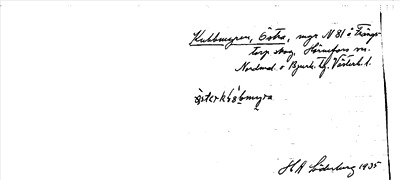 Kubbmyren, Östra, myr N 81 å Trångs-
torp skog, Hörnefors sn.
Nordmal. o Bjurh. tg. Västerb. l.
österkubbmyra
H A Söderberg 1935